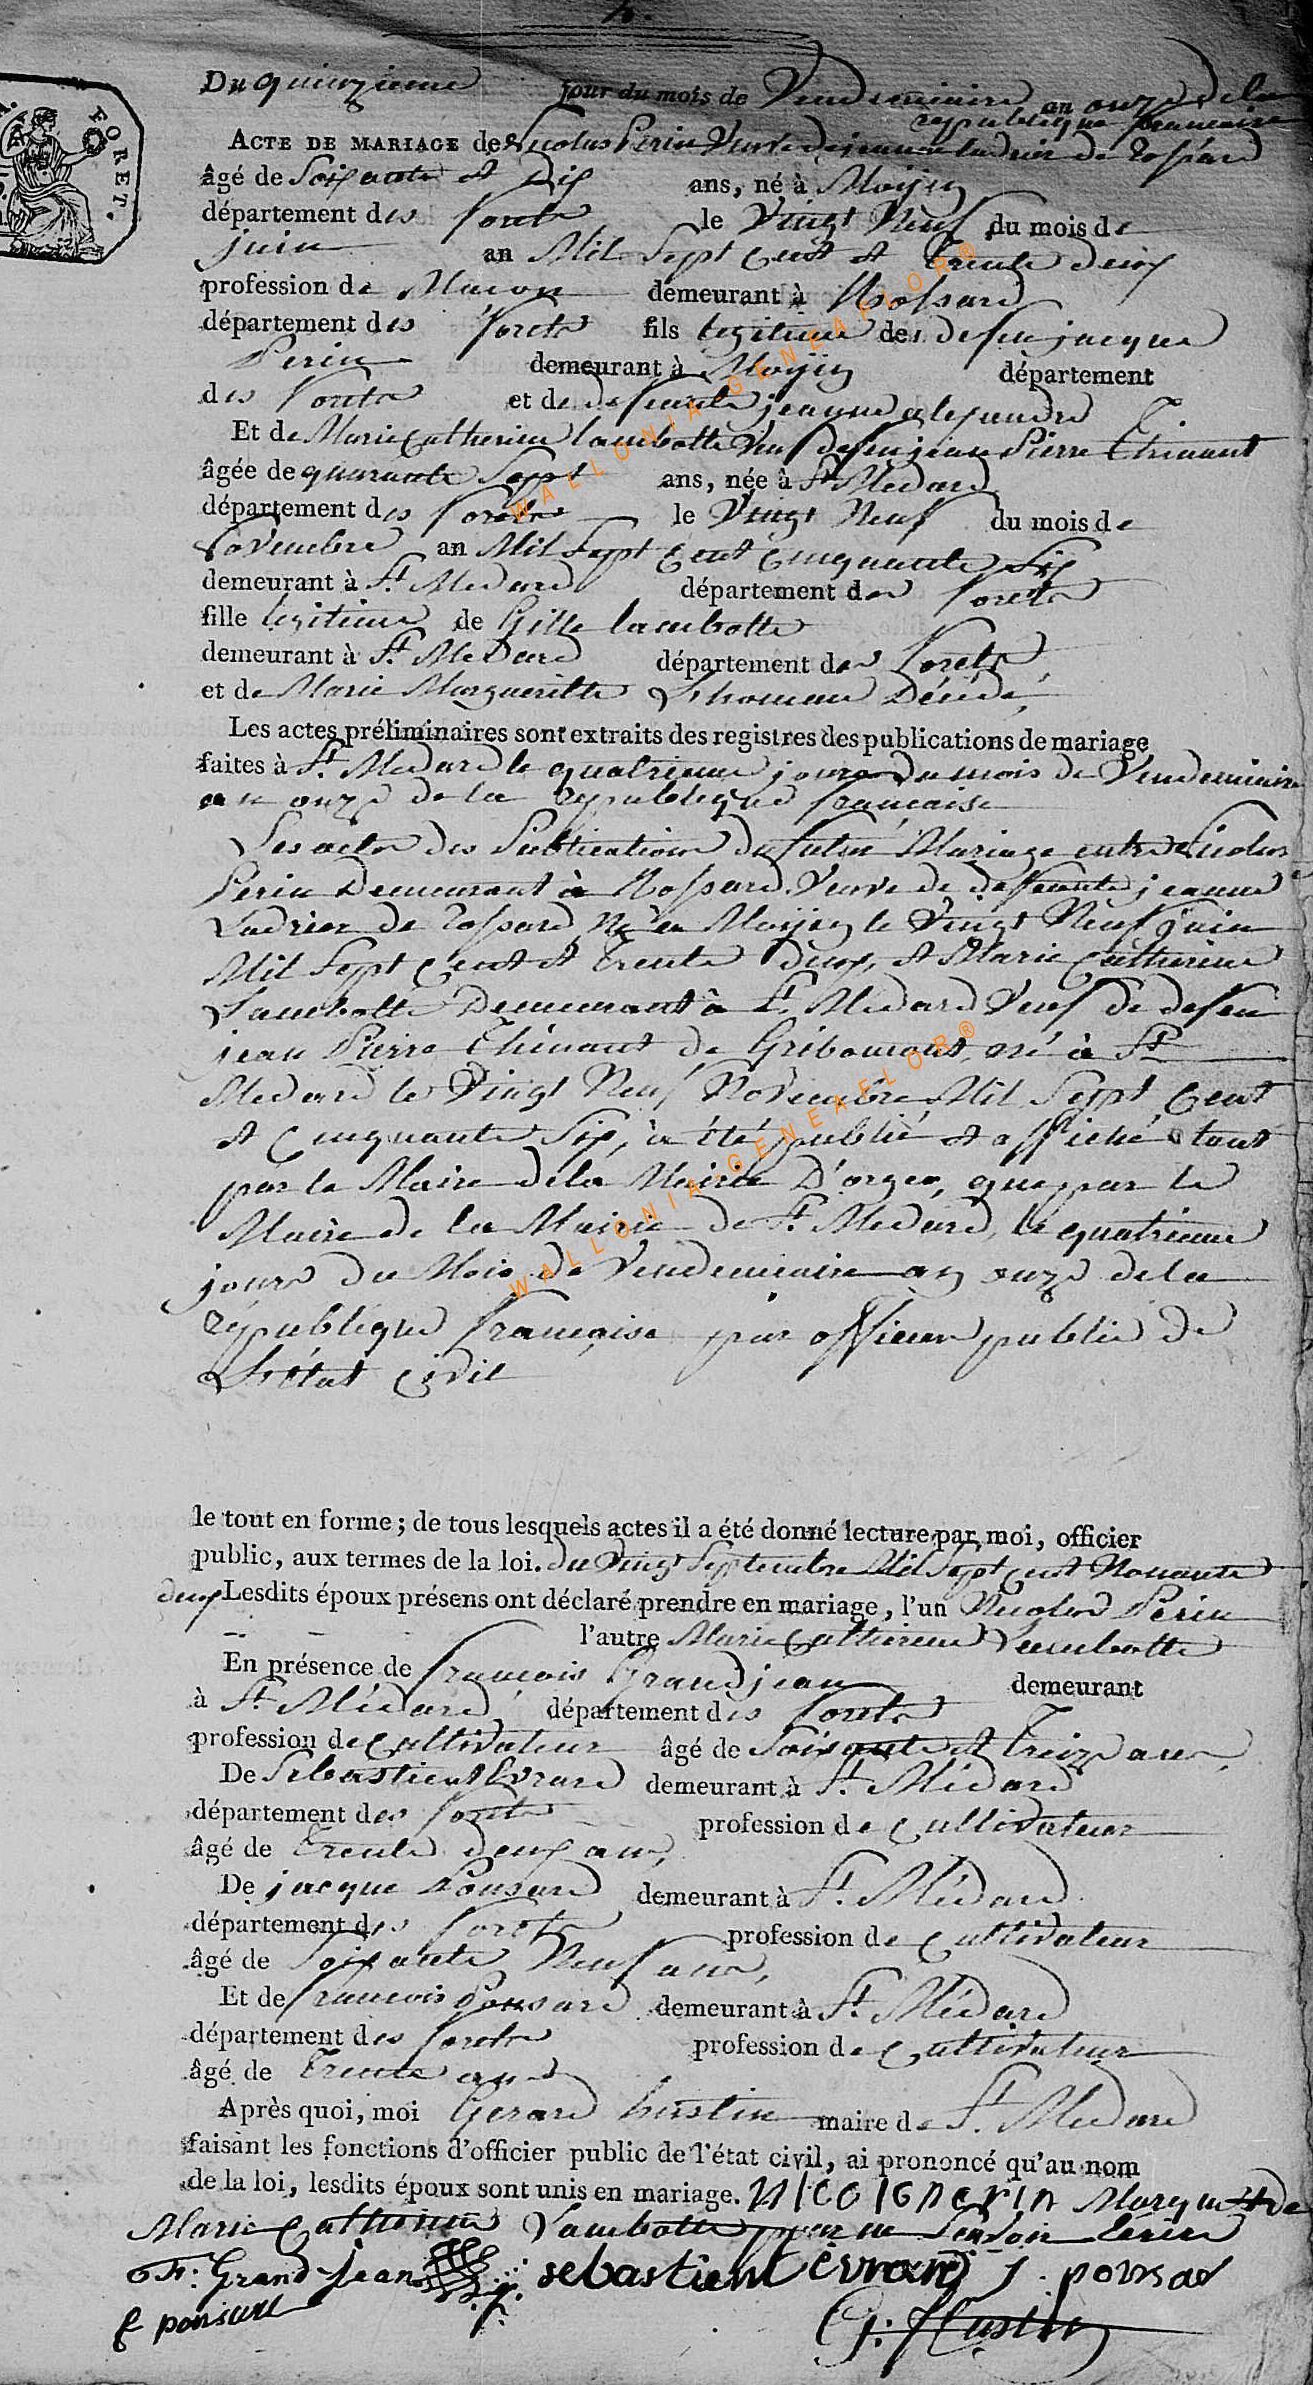 Du quinzieme jour du mois de Vendemiaire an onze de la
republique francaise
ACTE DE MARIAGE de Nicolas Perin Veuve de jeanne Ladrier de Rossard
âgé de Soixante et dix ans, né à Moyen
département des forets le Vingt Neuf du mois de
juin an Mil Sept Cent et trente deux
profession de Macon demeurant à Rossard
département des forets fils legitime de defeu jacque
Perin demeurant à Moyen département
des forets et de defeunte jeanne alexandre
Et de Marie Catherine lambotte Veuf defeu jean Pierre Thinant
âgée de quarante Sept ans, née à St Medard
département des forets le Vingt Neuf du mois de
Novembre an Mil Sept Cent Cinquante Six
demeurant à St Medard département des forets
fille legitime de Gille lambotte
demeurant à St Medard département des forets
et de Marie Margueritte Décédé,
Les actes préliminaires sont extraits des registres des publications de mariage
faites à St Medard le quatrieme jour du mois de Vendemiaire
an onze de la republique francaise
Les actes des Publication du futur Mariage entre Nicolas
Perin Demeurant à Rossard Veuve de defeunte jeanne
Ladrier de Rossard Né en Moyen le Vingt Neuf juin
Mil Sept Cent et trente deux, et Marie Catherine
Lambotte Demeurant à St Medard Veuf de defeu
jean Pierre Thinant de Gribomont, né à St
Medard le Vingt Neuf Novembre Mil Sept Cent
et Cinquante Six, à été publié et affiché tant
par le Maire de la Mairie D'orgeo, que par le
Maire de la Mairie de St Medard, le quatrieme
jour du Mois de Vendemiaire an onze de la
république francaise par officier public de
L'état Civil
le tout en forme ; de tous lesquels actes il a été donné lecture par moi, officier
public, aux termes de la loi. du Vingt Septembre Mil Sept Cent Nonante
deux Lesdits époux présens ont déclaré prendre en mariage, l'un Nicolas Perin
l'autre Marie Catherine Lambotte
En présence de francois Grandjean demeurant
à St Médard département des forets
profession de Cultivateur âgé de Soixante et treize ans,
De Sebastient Evrard demeurant à St Médard
département des forets profession de Cultivateur
âgé de trente deux ans,
De jacque Ponsard demeurant à St Médard
département des forets profession de Cultivateur
âgé de Soixante Neuf ans,
Et de francois Ponsard demeurant à St Médard
département des forets profession de Cultivateur
âgé de trente ans
Après quoi, moi Gerard hustin maire de St Medard
faisant les fonctions d'officier public de l'état civil, ai prononcé qu'au nom
de la loi, lesdits époux sont unis en mariage. Nicola perin Marque de
Marie Catherine Lambotte pour ne Savoir Ecrire
F: Grand Jean sebastient evrard J. ponsar
f ponsard
G: Hustin
FORET.
WALLONIA-GENEAFLOR®
WALLONIA-GENEAFLOR®